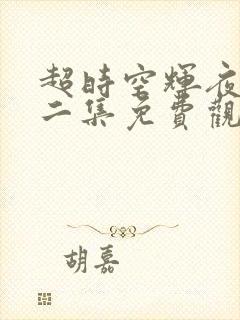 超時空輝夜
二集免費觀
胡嘉